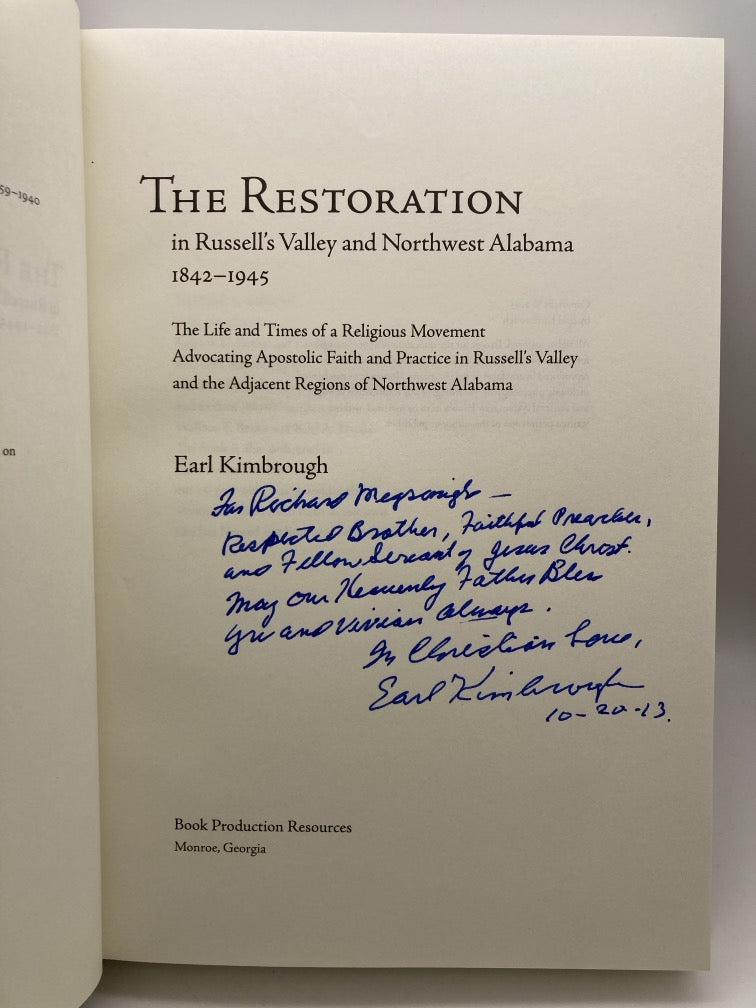 59–1940
on
The Restoration
in Russell's Valley and Northwest Alabama
1842–1945
The Life and Times of a Religious Movement
Advocating Apostolic Faith and Practice in Russell's Valley
and the Adjacent Regions of Northwest Alabama
Earl Kimbrough
For Richard —
Respected Brother, Faithful Preacher,
and Fellow Servant of Jesus Christ.
May our Heavenly Father Bless
you and Vivian always.
In Christian Love,
Earl Kimbrough
10-20-13.
Book Production Resources
Monroe, Georgia